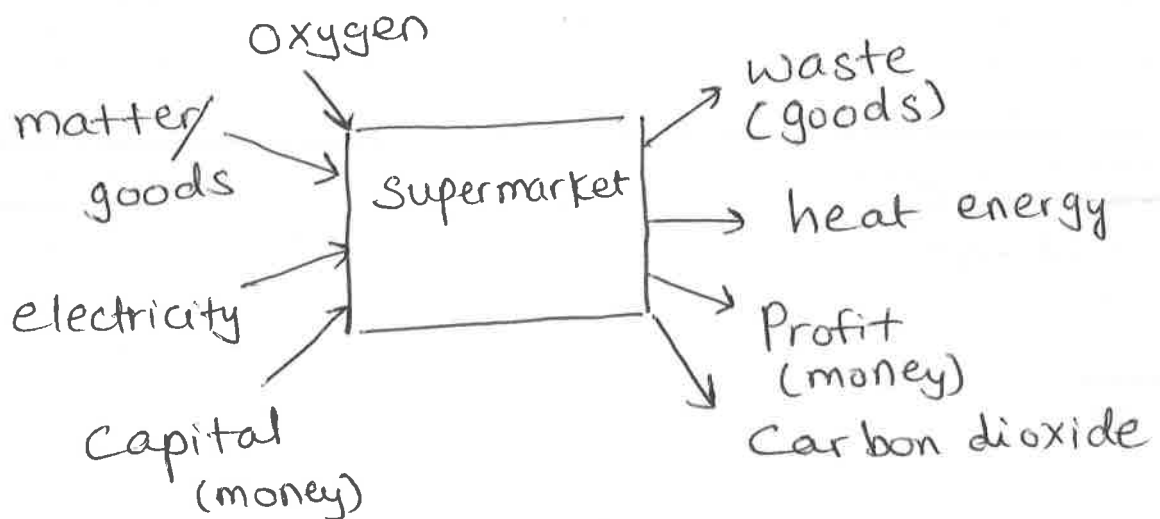 oxygen
matter/
goods
electricity
Capital
(money)
Supermarket
waste
(goods)
heat energy
Profit
(money)
Carbon dioxide